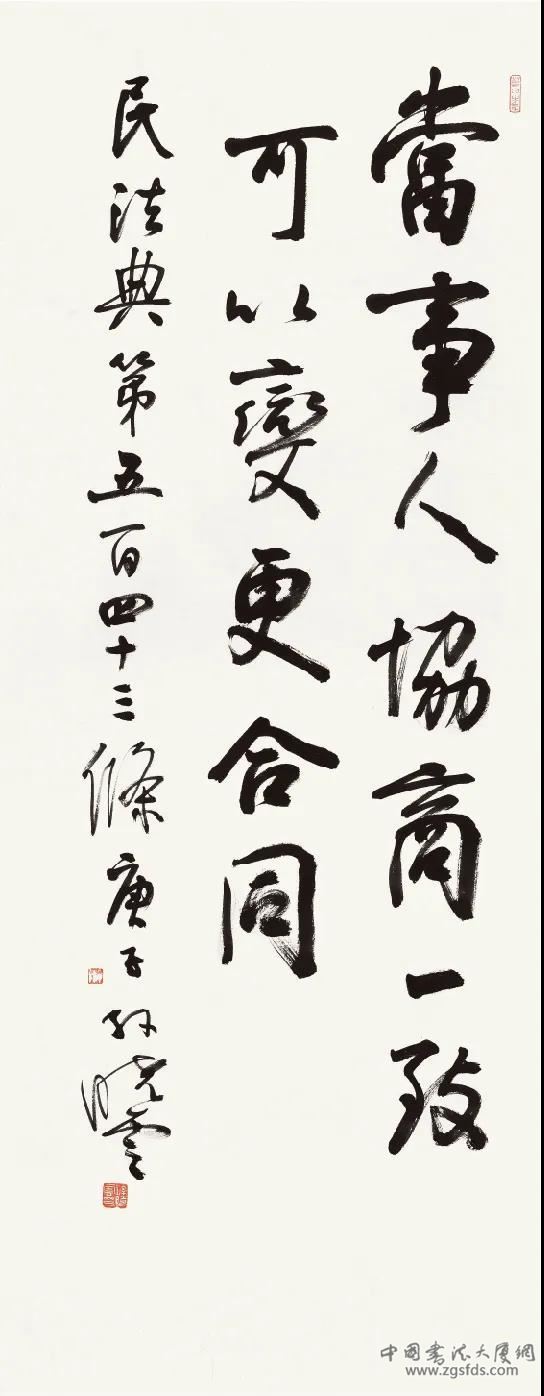 當事人協商一致
可以變更合同
民法典第五百四十三條 庚子 孫曉雲
中国书法大厦網
www.zgsfds.com